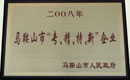 二〇〇八年
马鞍山市“专，精，特，新”企业
马鞍山市人民政府